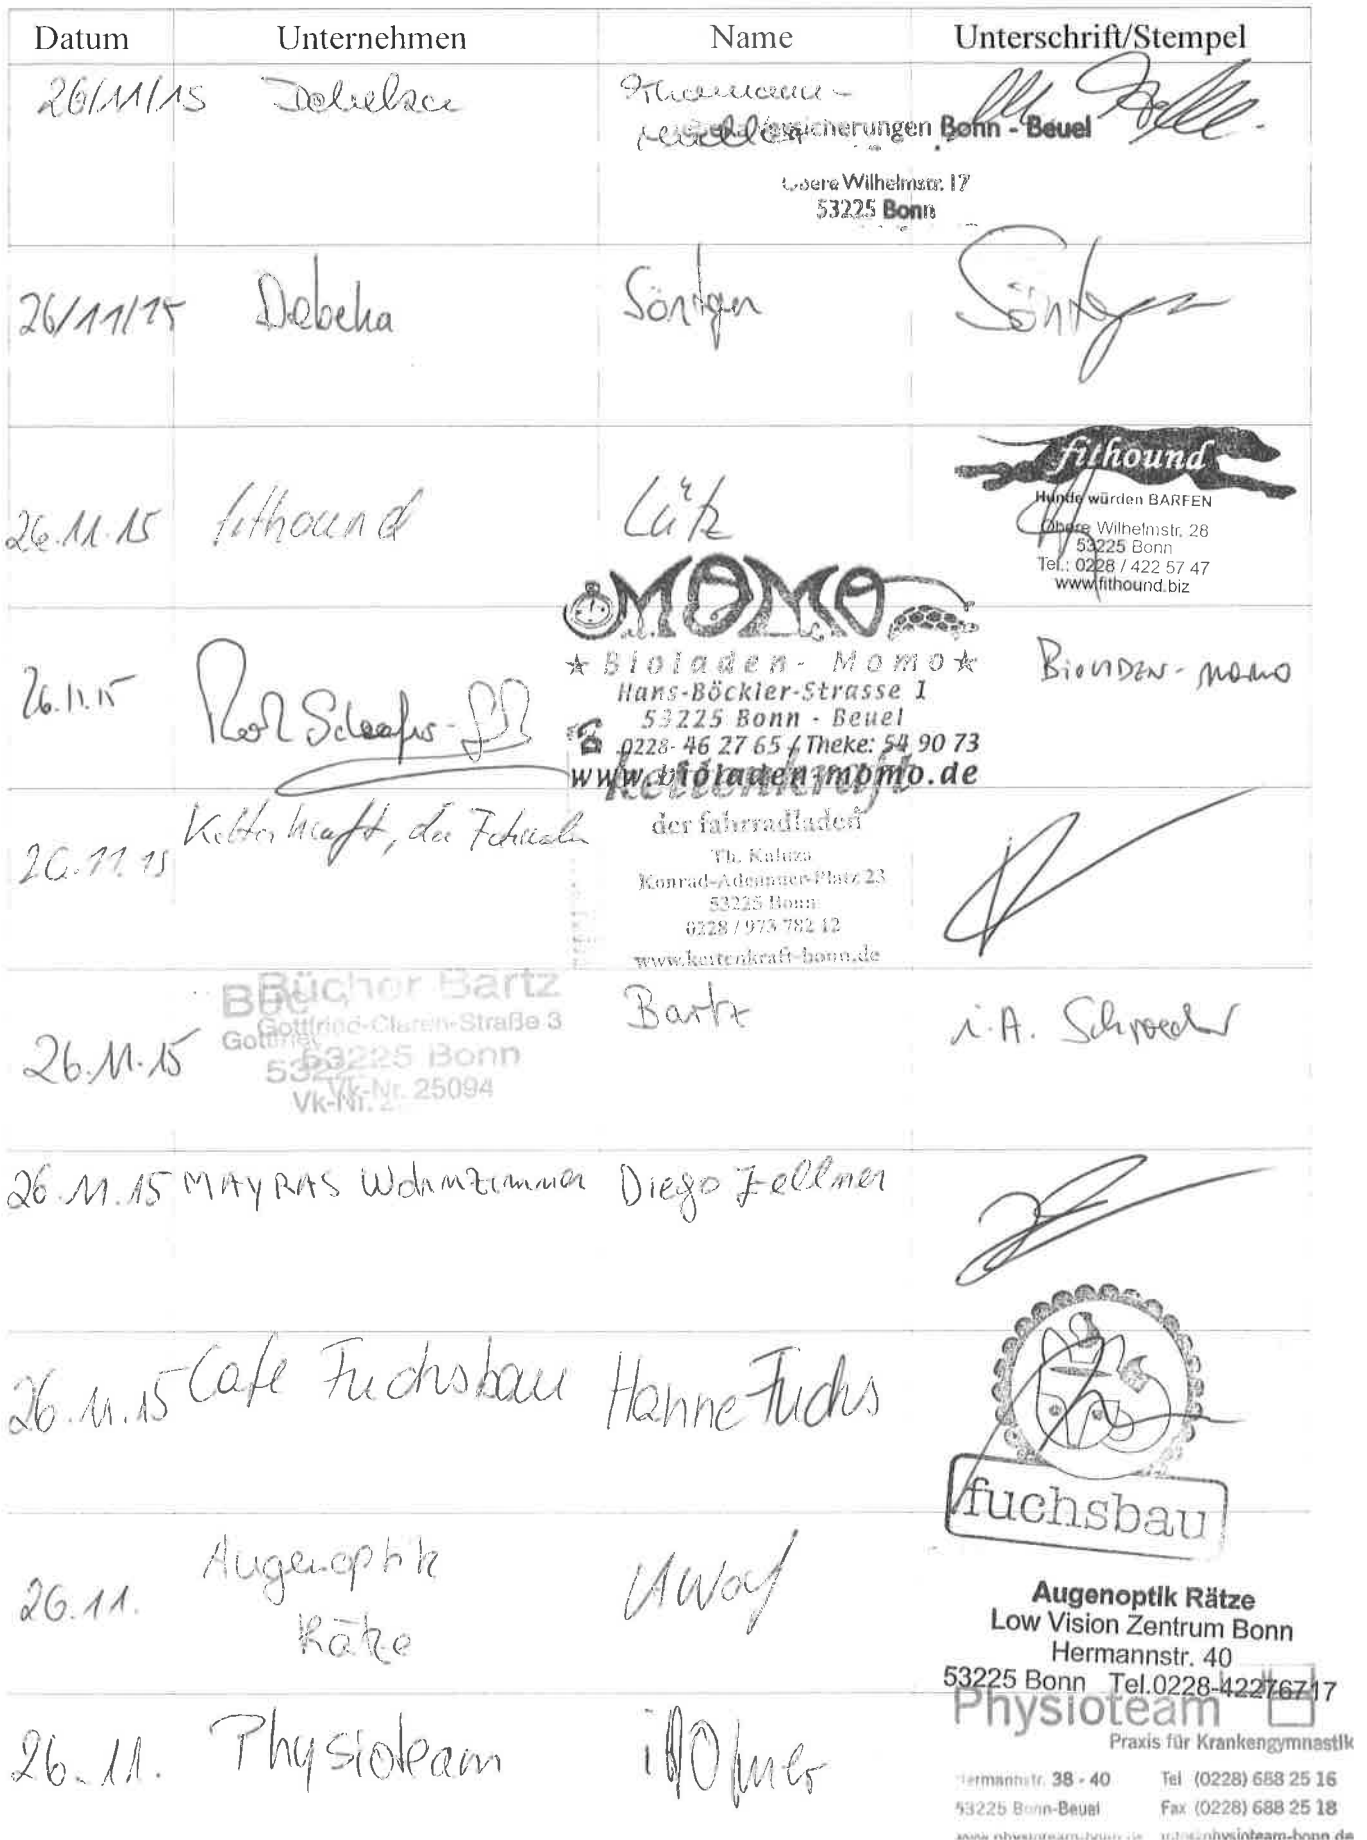 Datum Unternehmen Name Unterschrift/Stempel
26/11/15 Debeka Thomann-
Versicherungen Bonn - Beuel
Obere Wilhelmstr. 17
53225 Bonn
26/11/15 Debeka Söntgen Söntgen
fithound
Hunde würden BARFEN
26.11.15 fithound Lütz
Obere Wilhelmstr. 28
53225 Bonn
Tel.: 0228 / 422 57 47
www.fithound.biz
MOMO
Bioladen - Momo
26.11.15 BIOLADEN-MOMO
Hans-Böckler-Strasse 1
53225 Bonn - Beuel
0228- 46 27 65 / Theke: 54 90 73
www.bioladen-momo.de
kettenkraft
der fahrradladen
26.11.15 Kettenkraft, der
Th. Kaluza
Konrad-Adenauer-Platz 23
53225 Bonn
0228 / 973 782 12
www.kettenkraft-bonn.de
Bücher Bartz
Gottfried-Claren-Straße 3
53225 Bonn
Vk-Nr. 25094
26.11.15 Bartz i.A. Schroeder
26.11.15 MAYRAS Wohnzimmer Diego Zellmer
26.11.15 Cafe Fuchsbau Hanne Fuchs
fuchsbau
26.11. Augenoptik
Rätze
Augenoptik Rätze
Low Vision Zentrum Bonn
Hermannstr. 40
53225 Bonn Tel.0228-42276717
26.11. Physioteam
Physioteam
Praxis für Krankengymnastik
Hermannstr. 38 - 40 Tel (0228) 688 25 16
53225 Bonn-Beuel Fax (0228) 688 25 18
www.physioteam-bonn.de info@physioteam-bonn.de